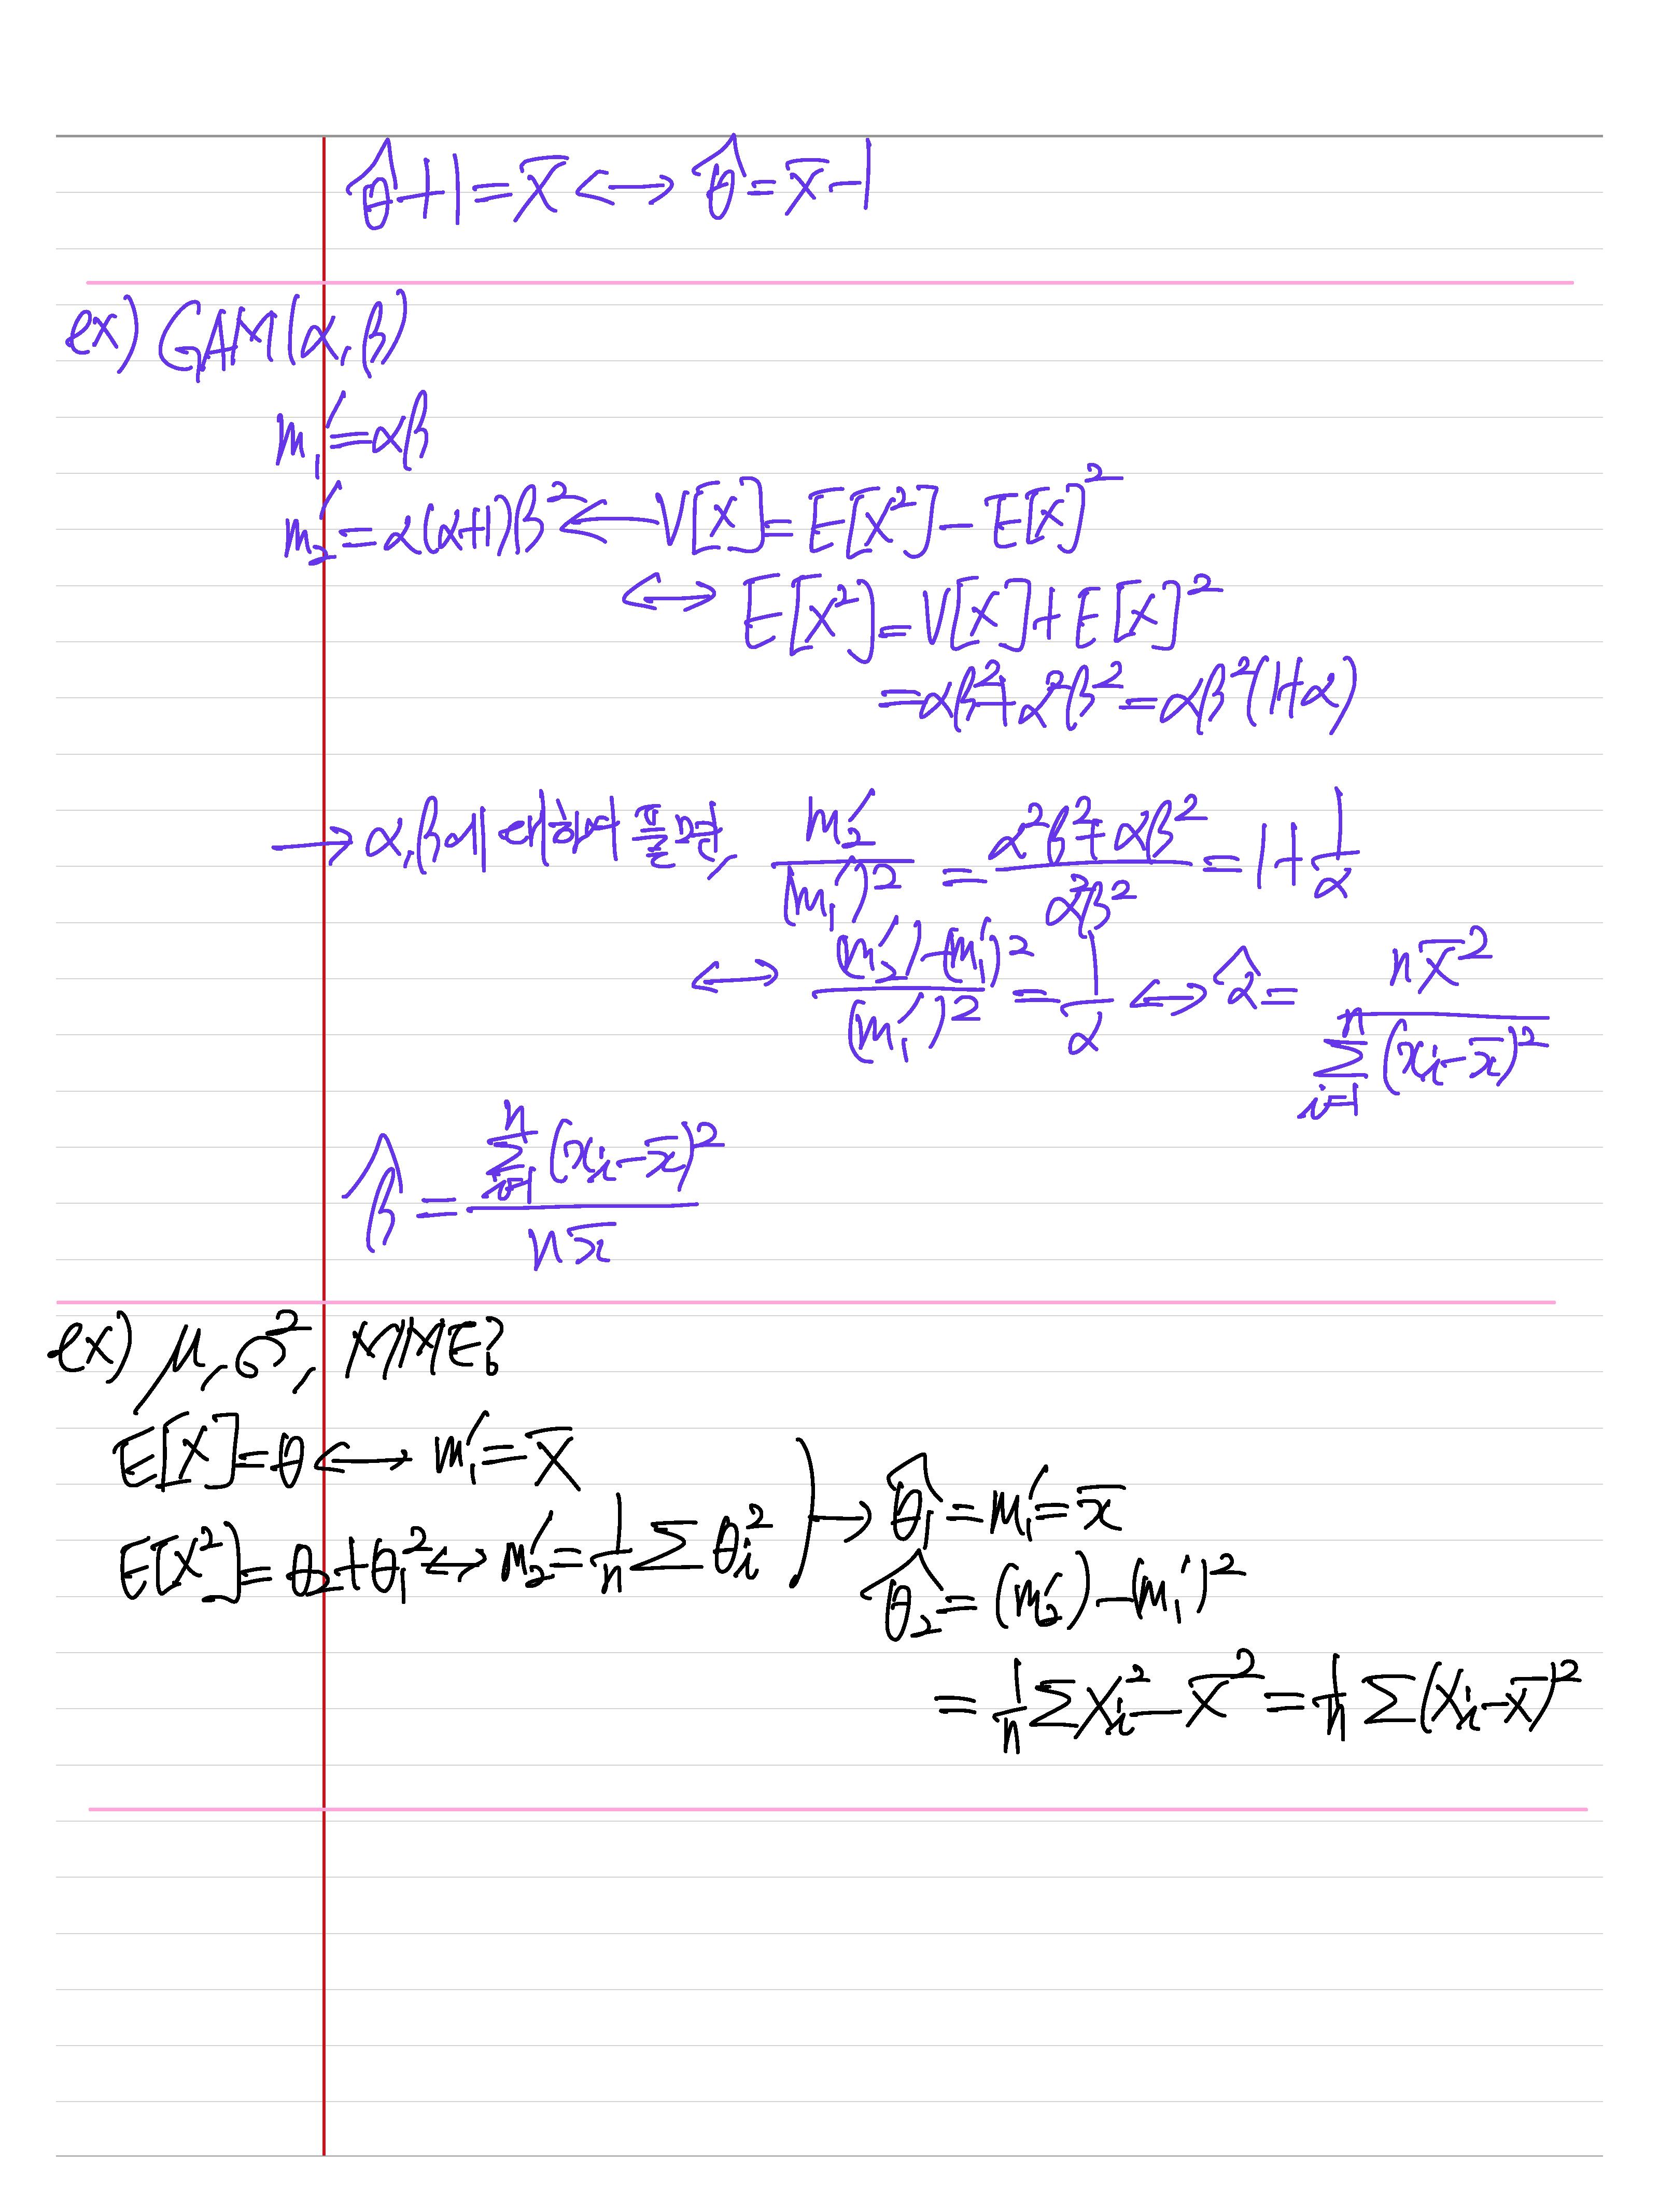 θ̂+1=x̄ ↔ θ̂=x̄-1
ex) GAM(α, β)
m₁′=αβ
m₂′=α(α+1)β² ← V[X]=E[X²]-E[X]²
↔ E[X²]=V[X]+E[X]²
=αβ²+α²β²=αβ²(1+α)
→ α, β에 대하여 풀면, m₂′/(m₁′)² = (α²β²+αβ²)/(α²β²) = 1+1/α
↔ ((m₂′)-(m₁′)²)/(m₁′)² = 1/α ↔ α̂ = nx̄²/∑ⁿᵢ₌₁(xᵢ-x̄)²
β̂ = ∑ⁿᵢ₌₁(xᵢ-x̄)²/nx̄
ex) μ, σ², MME?
E[X]=θ ↔ m₁′=x̄
E[X²]=θ₂+θ₁² ↔ m₂′=1/n ∑θᵢ² ) → θ̂₁=m₁′=x̄
θ̂₂=(m₂′)-(m₁′)²
=1/n ∑Xᵢ²-x̄²=1/n ∑(Xᵢ-x̄)²